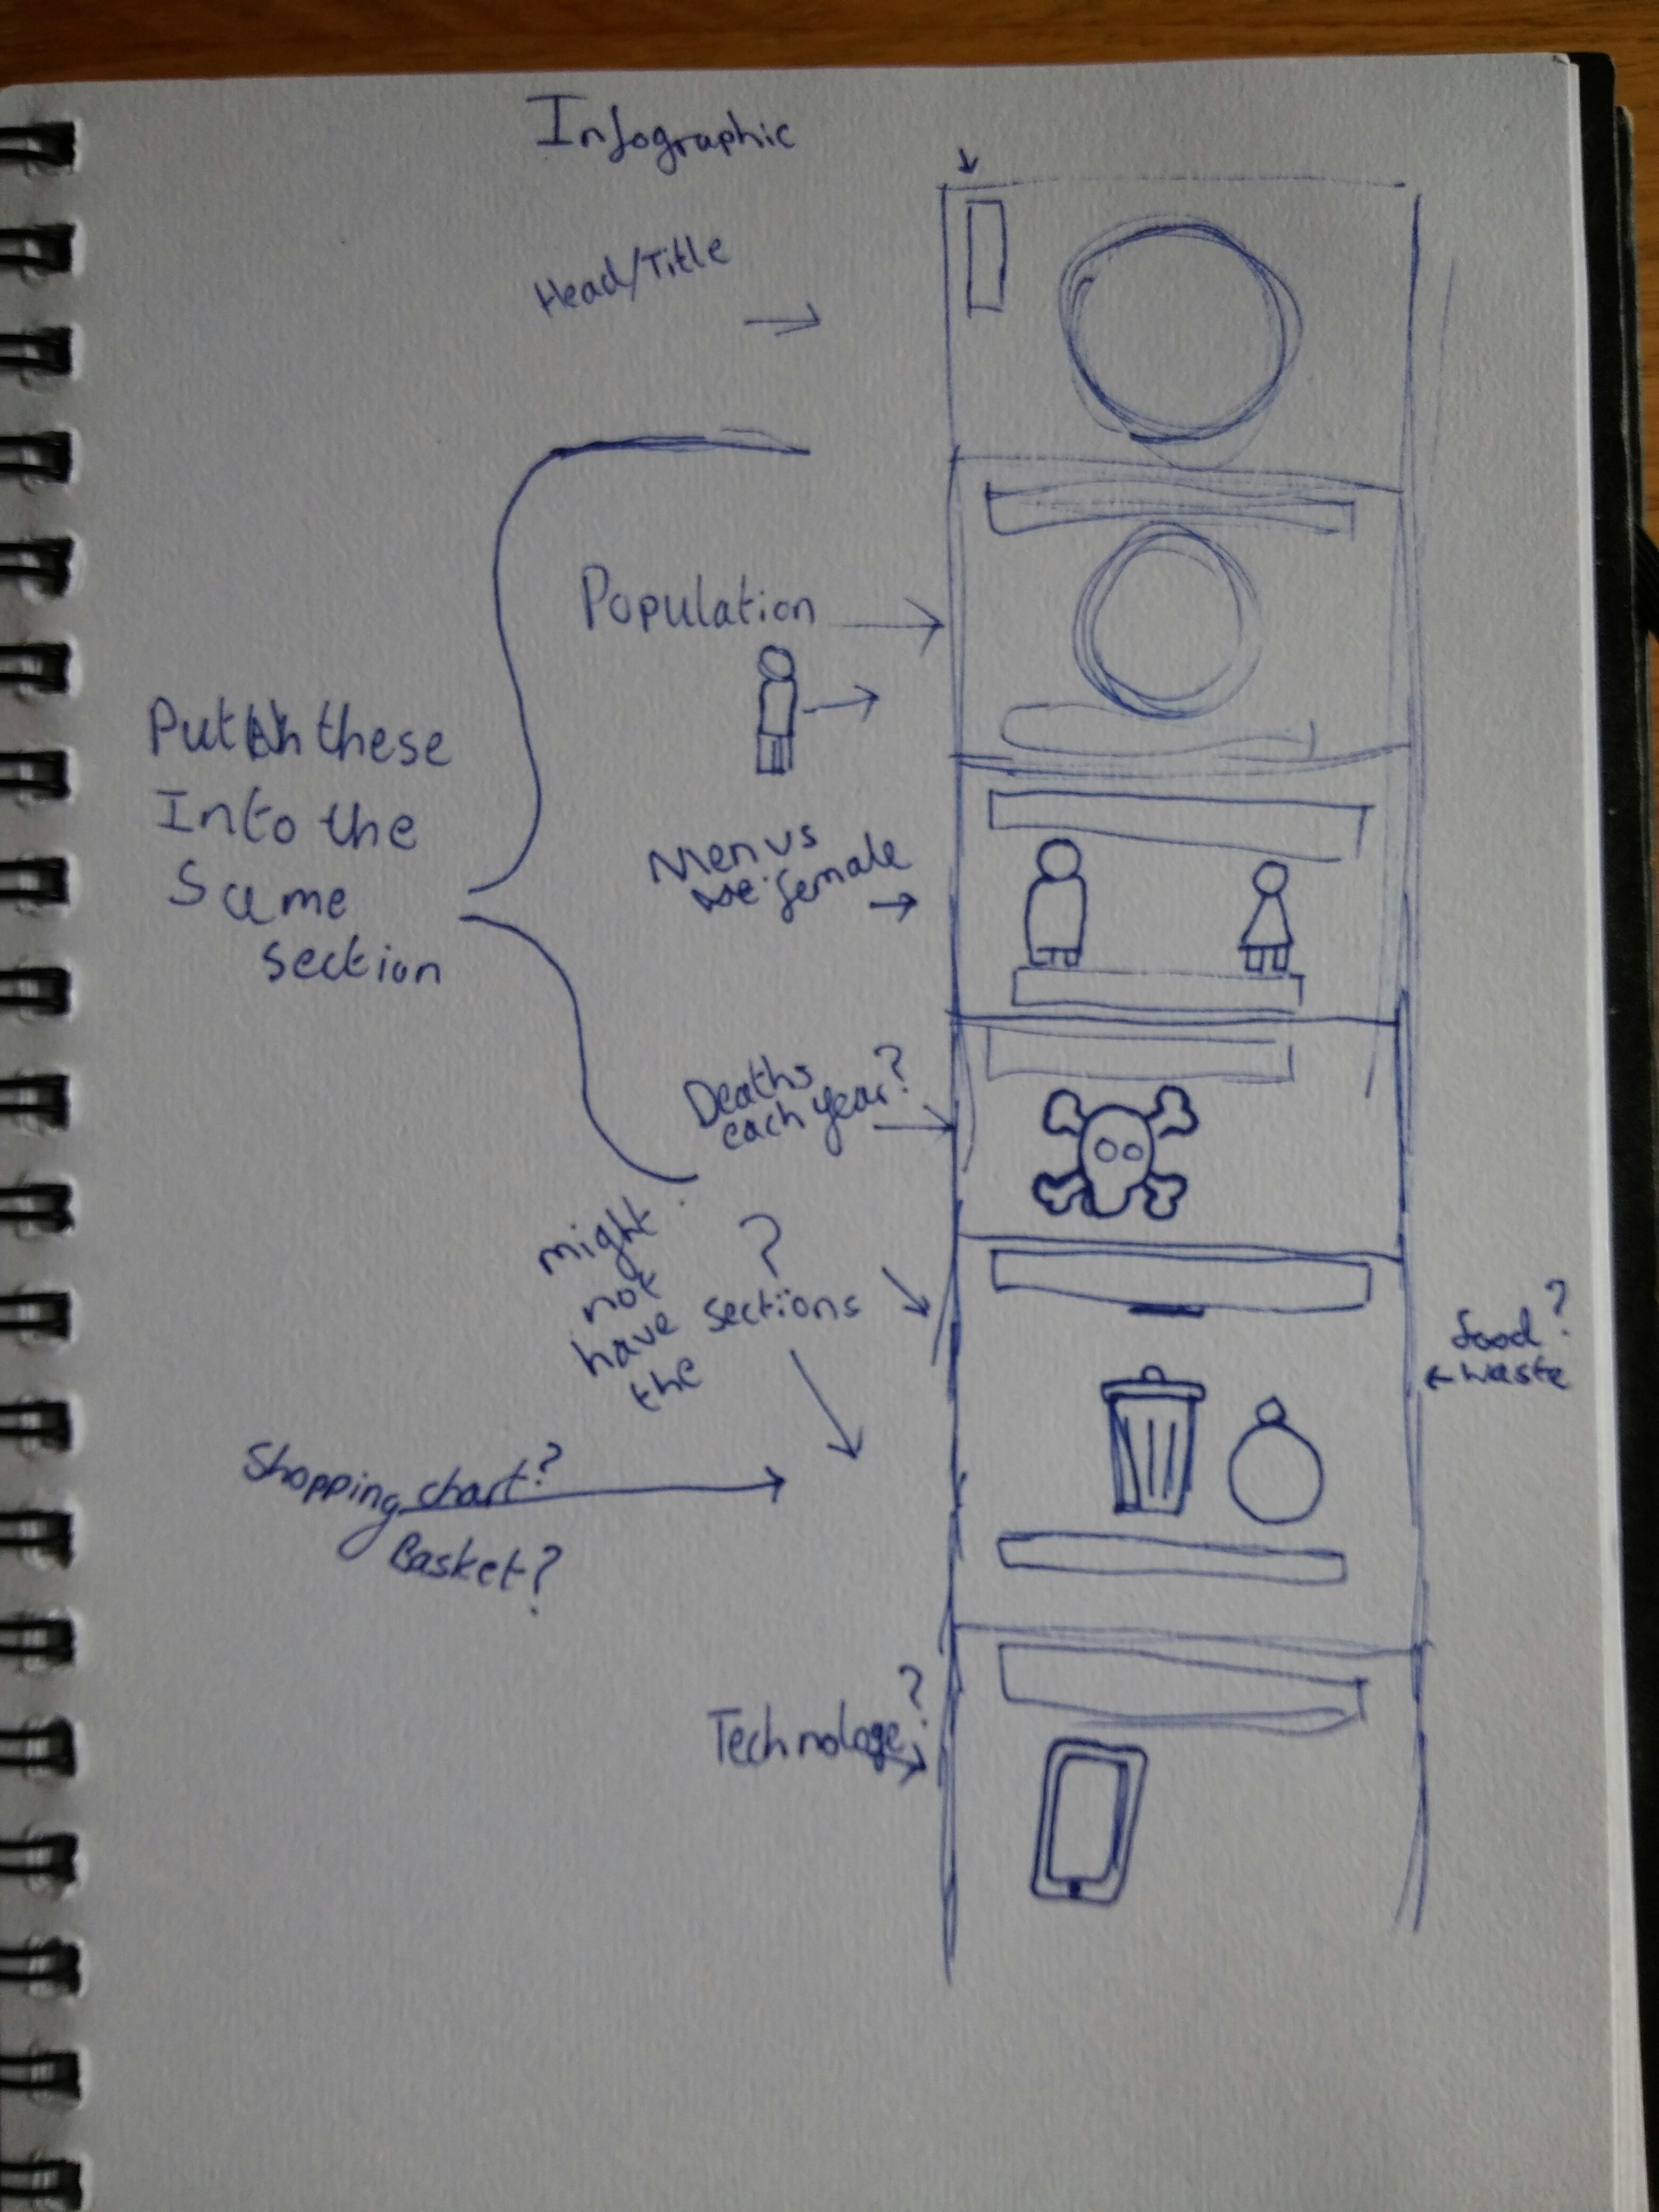 Infographic
Head/Title
Population
Put these
Into the
Same
section
Men vs
female
Deaths
each year?
might
not
have
the
?
sections
food?
waste
Shopping chart?
Basket?
Technologe?